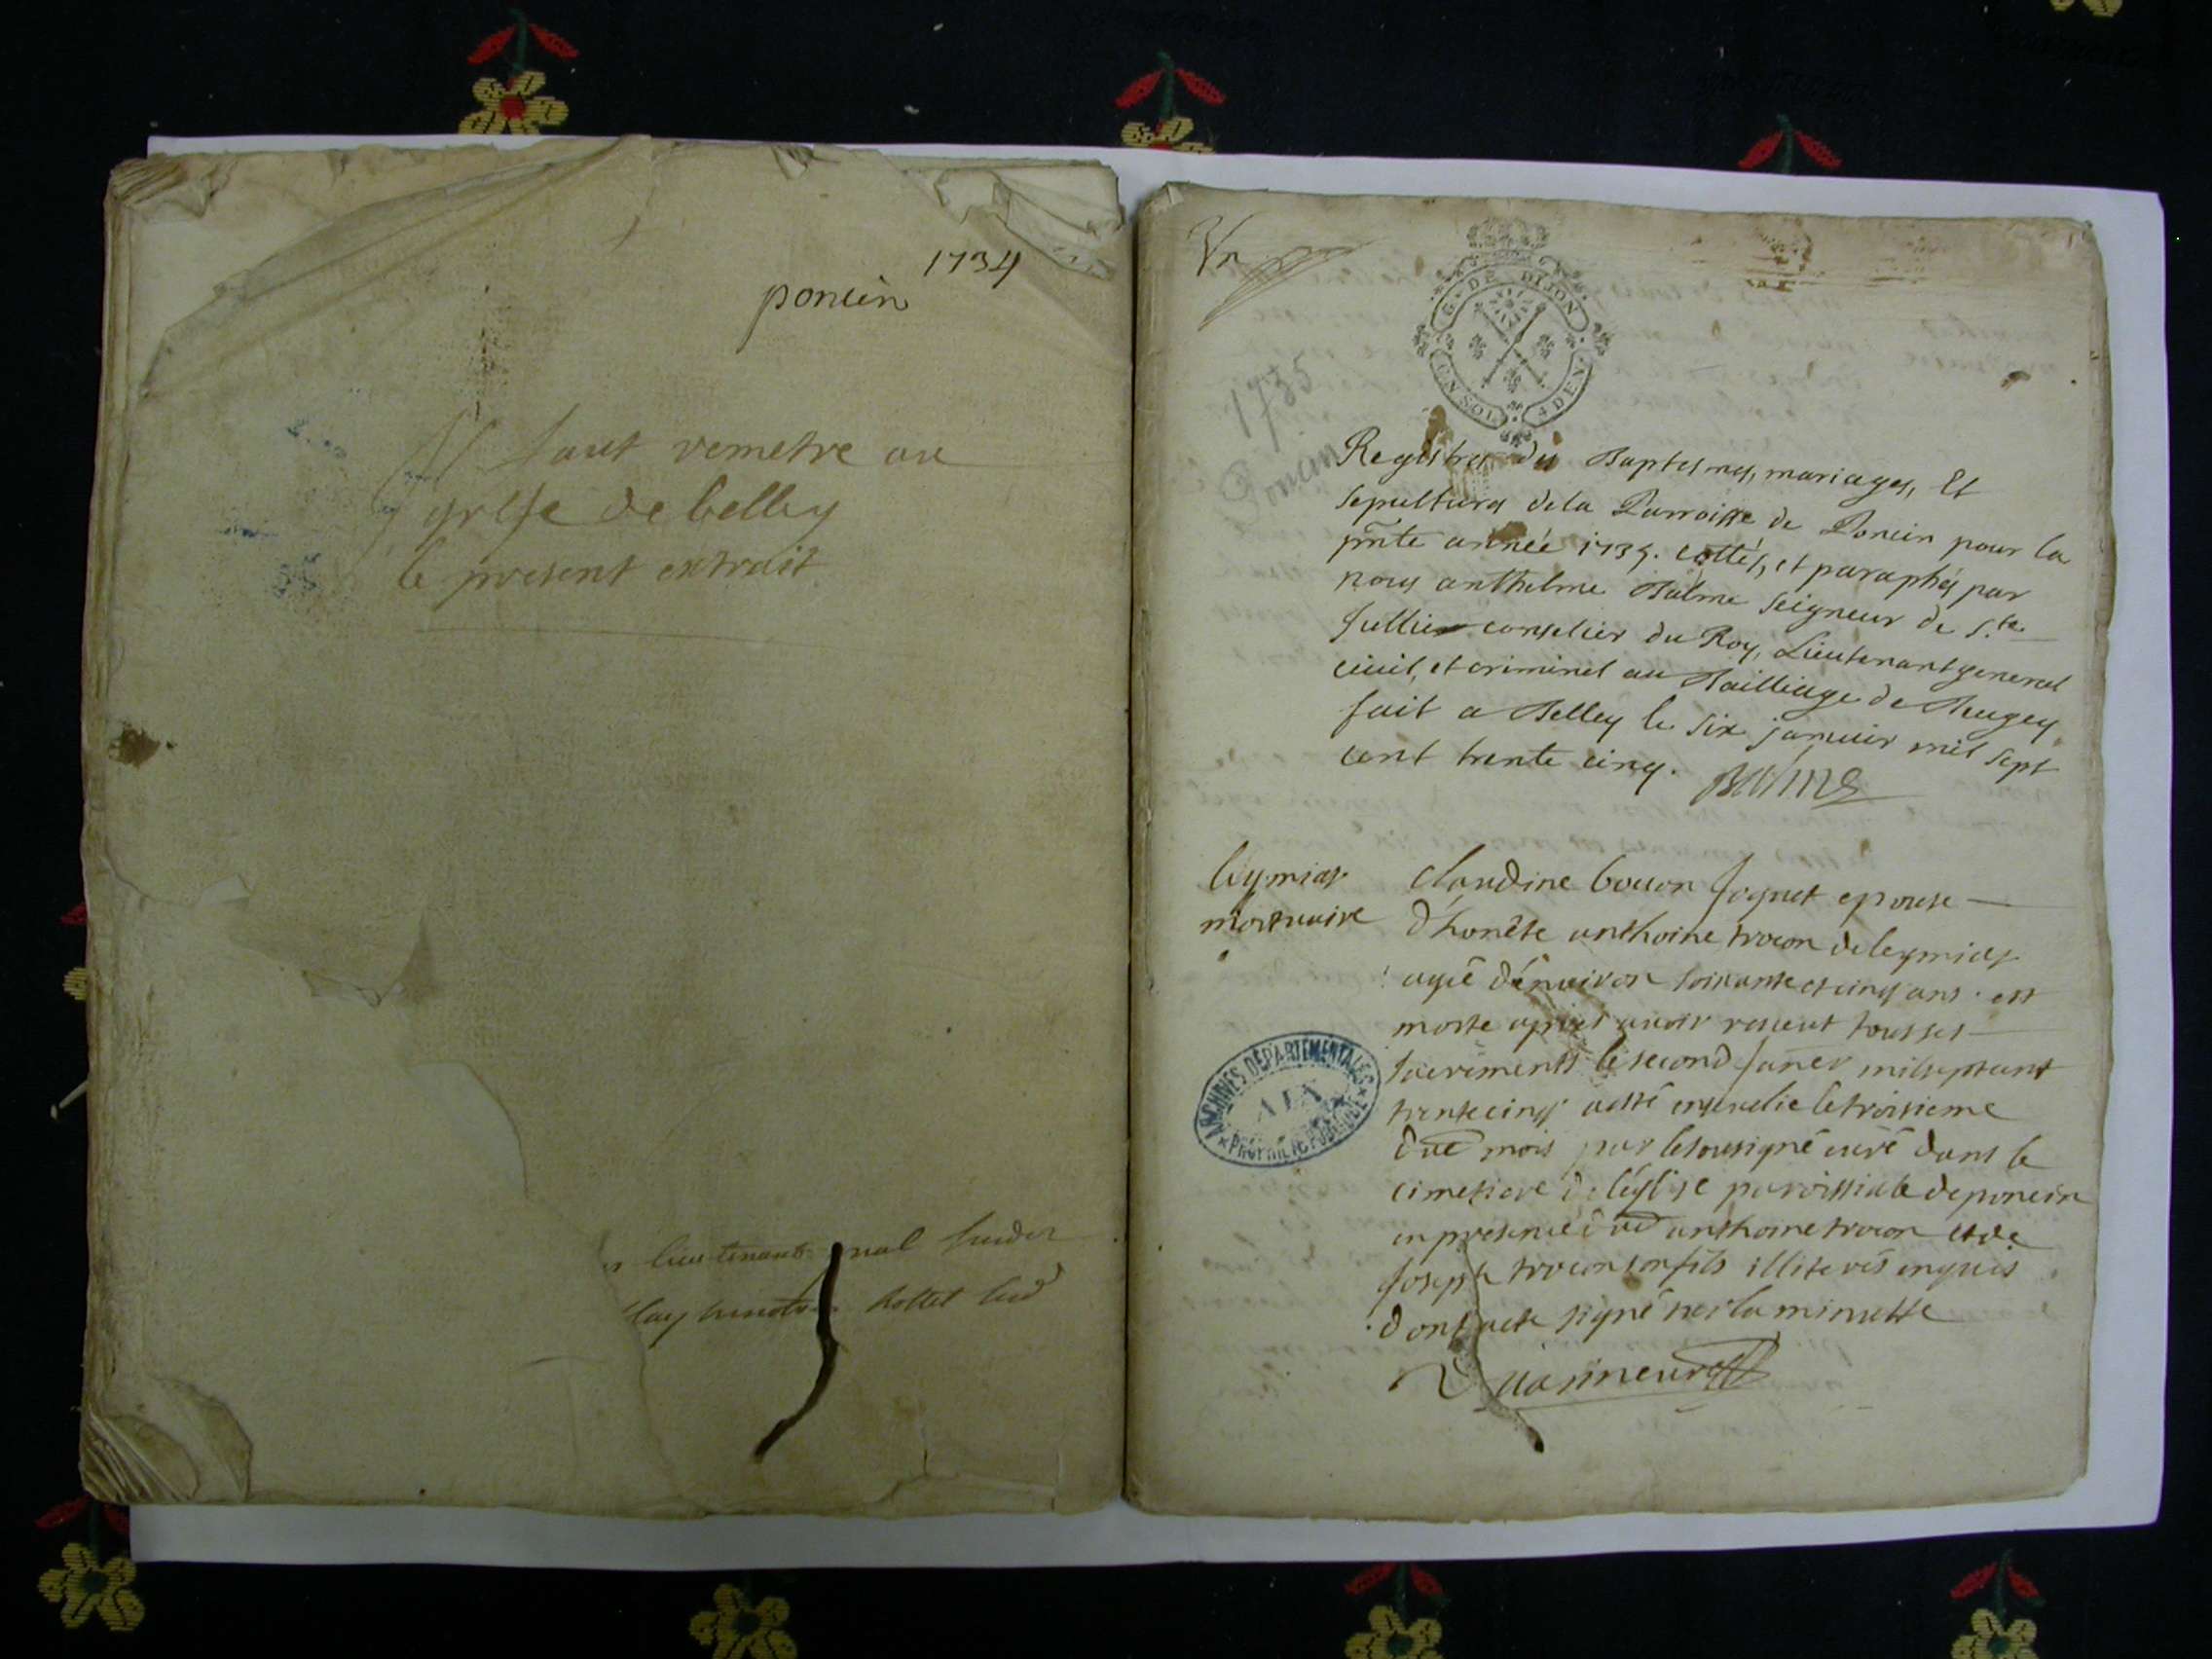 1734
poncin
Il faut remetre au
grefe de belley
le present extrait
lieutenant
Vn
G. DE DIJON
DEN.
1735
Poncin
Registres des Baptesmes, mariages, Et
sepultures de la Parroisse de Poncin pour la
pnte année 1735. cottés, et paraphés par
nous anthelme Balme seigneur de Ste
Jullie conselier du Roy, Lieutenant general
ciuil, et criminel au Bailliage de Beugey
fait a Belley le six januier mil sept
cent trente cinq. Balme
leymiat
mortuaire
claudine bouon Joguet epouse
d'honête anthoine trocon de leymiat
agée d'enuiron soixante et cinq ans est
morte aprés auoir receut tous ses
sacrements le second janer mil sept cent
trente cinq a esté enseuelie le troisieme
dud mois par le sousigné curé dans le
cimetiere de l'église paroissiale de poncin
en presence dud anthoine trocon et de
Joseph trocon son fils illiterés enquis
dont acte signé sur la minutte
ARCHIVES DÉPARTEMENTALES
AIN
PROPRIÉTÉ PUBLIQUE